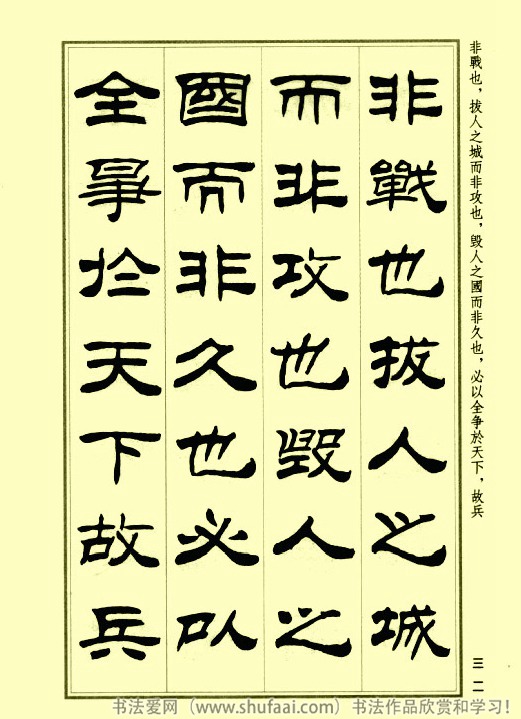 非戰也，拔人之城而非攻也，毁人之國而非久也，必以全争於天下，故兵
非戰也拔人之城
而非攻也毀人之
國而非久也必以
全爭於天下故兵
三一
书法爱网（www.shufaai.com）书法作品欣赏和学习！